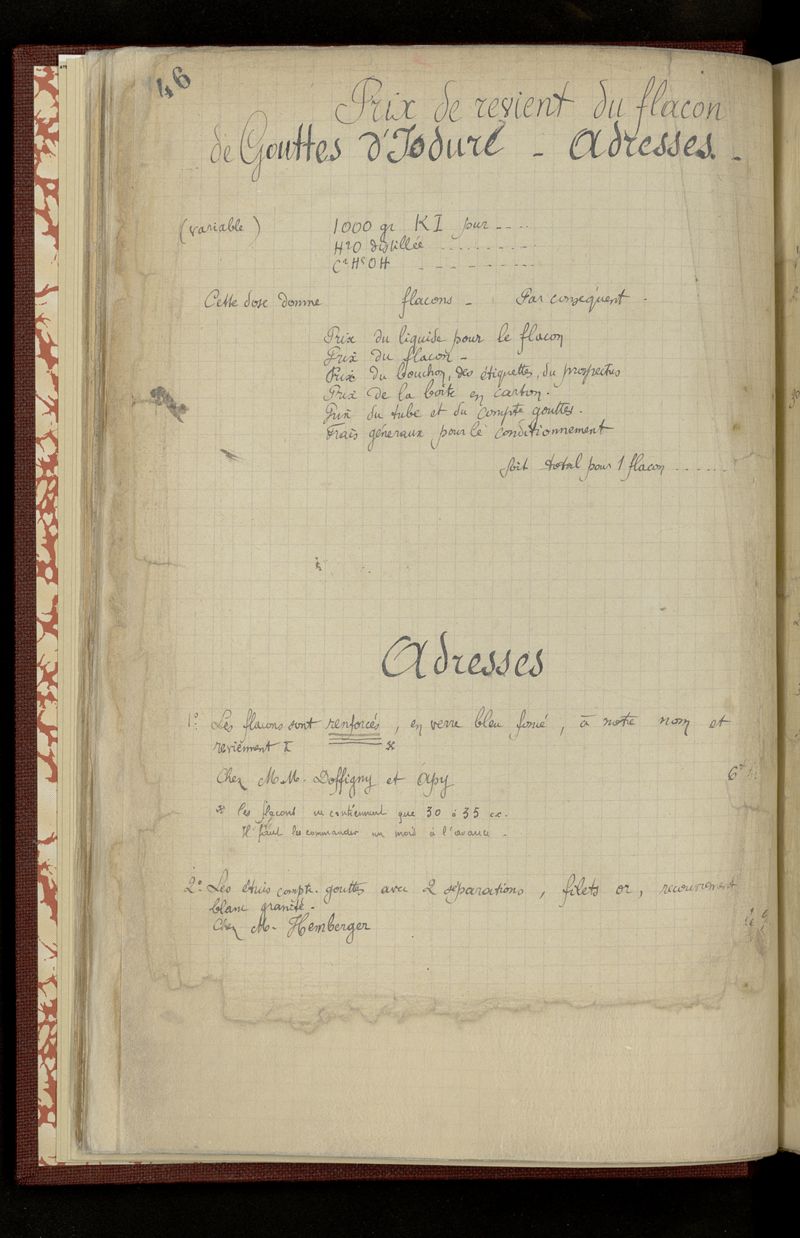 46
Prix de revient du flacon
de Gouttes d'Iodure - Adresses. -
(variable) 1000 gr KI pur - - - -
H2O distillée - - - - - - - - -
C2H5OH - - - - - - - - -
Cette dose donne flacons - Par conséquent -
Prix du liquide pour le flacon
Prix du flacon -
Prix du bouchon, des étiquettes, du prospectus
Prix de la boîte en carton.
Prix du tube et du compte gouttes.
Frais généraux pour le conditionnement
soit total pour 1 flacon - - - - - -
Adresses
1° Les flacons sont renforcés, en verre bleu foncé, à notre nom et
reviennent *
Chez M.M. Doffigny et Apy
* les flacons ne contiennent que 30 à 35 cc.
Il faut les commander un mois à l'avance -
2° Les étuis compte-gouttes avec 2 séparations, filets or, recouvrement
blanc granité -
Chez M. Hemberger